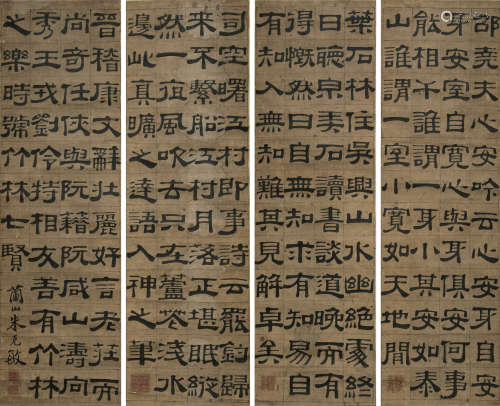 邵堯夫
身安室自寬心與身俱安何事
能相干誰謂一身小其安如泰
山誰謂一室小寬如天地間
葉石林住吳興山水幽絕處終
日聽泉石讀書談道晚而有
得慨然曰未知求有知易自
有知入無知難其見解卓矣
司空曙江村即事詩云罷釣歸
來不繫船江村月落正堪眠縱
然一夜風吹去只在蘆花淺水
邊此真曠之達語入神之筆
晉嵇康文辭壯麗好言老莊而
尚奇任俠與阮籍阮咸山濤向
秀王戎劉伶特相友善有竹林
之樂時號竹林七賢